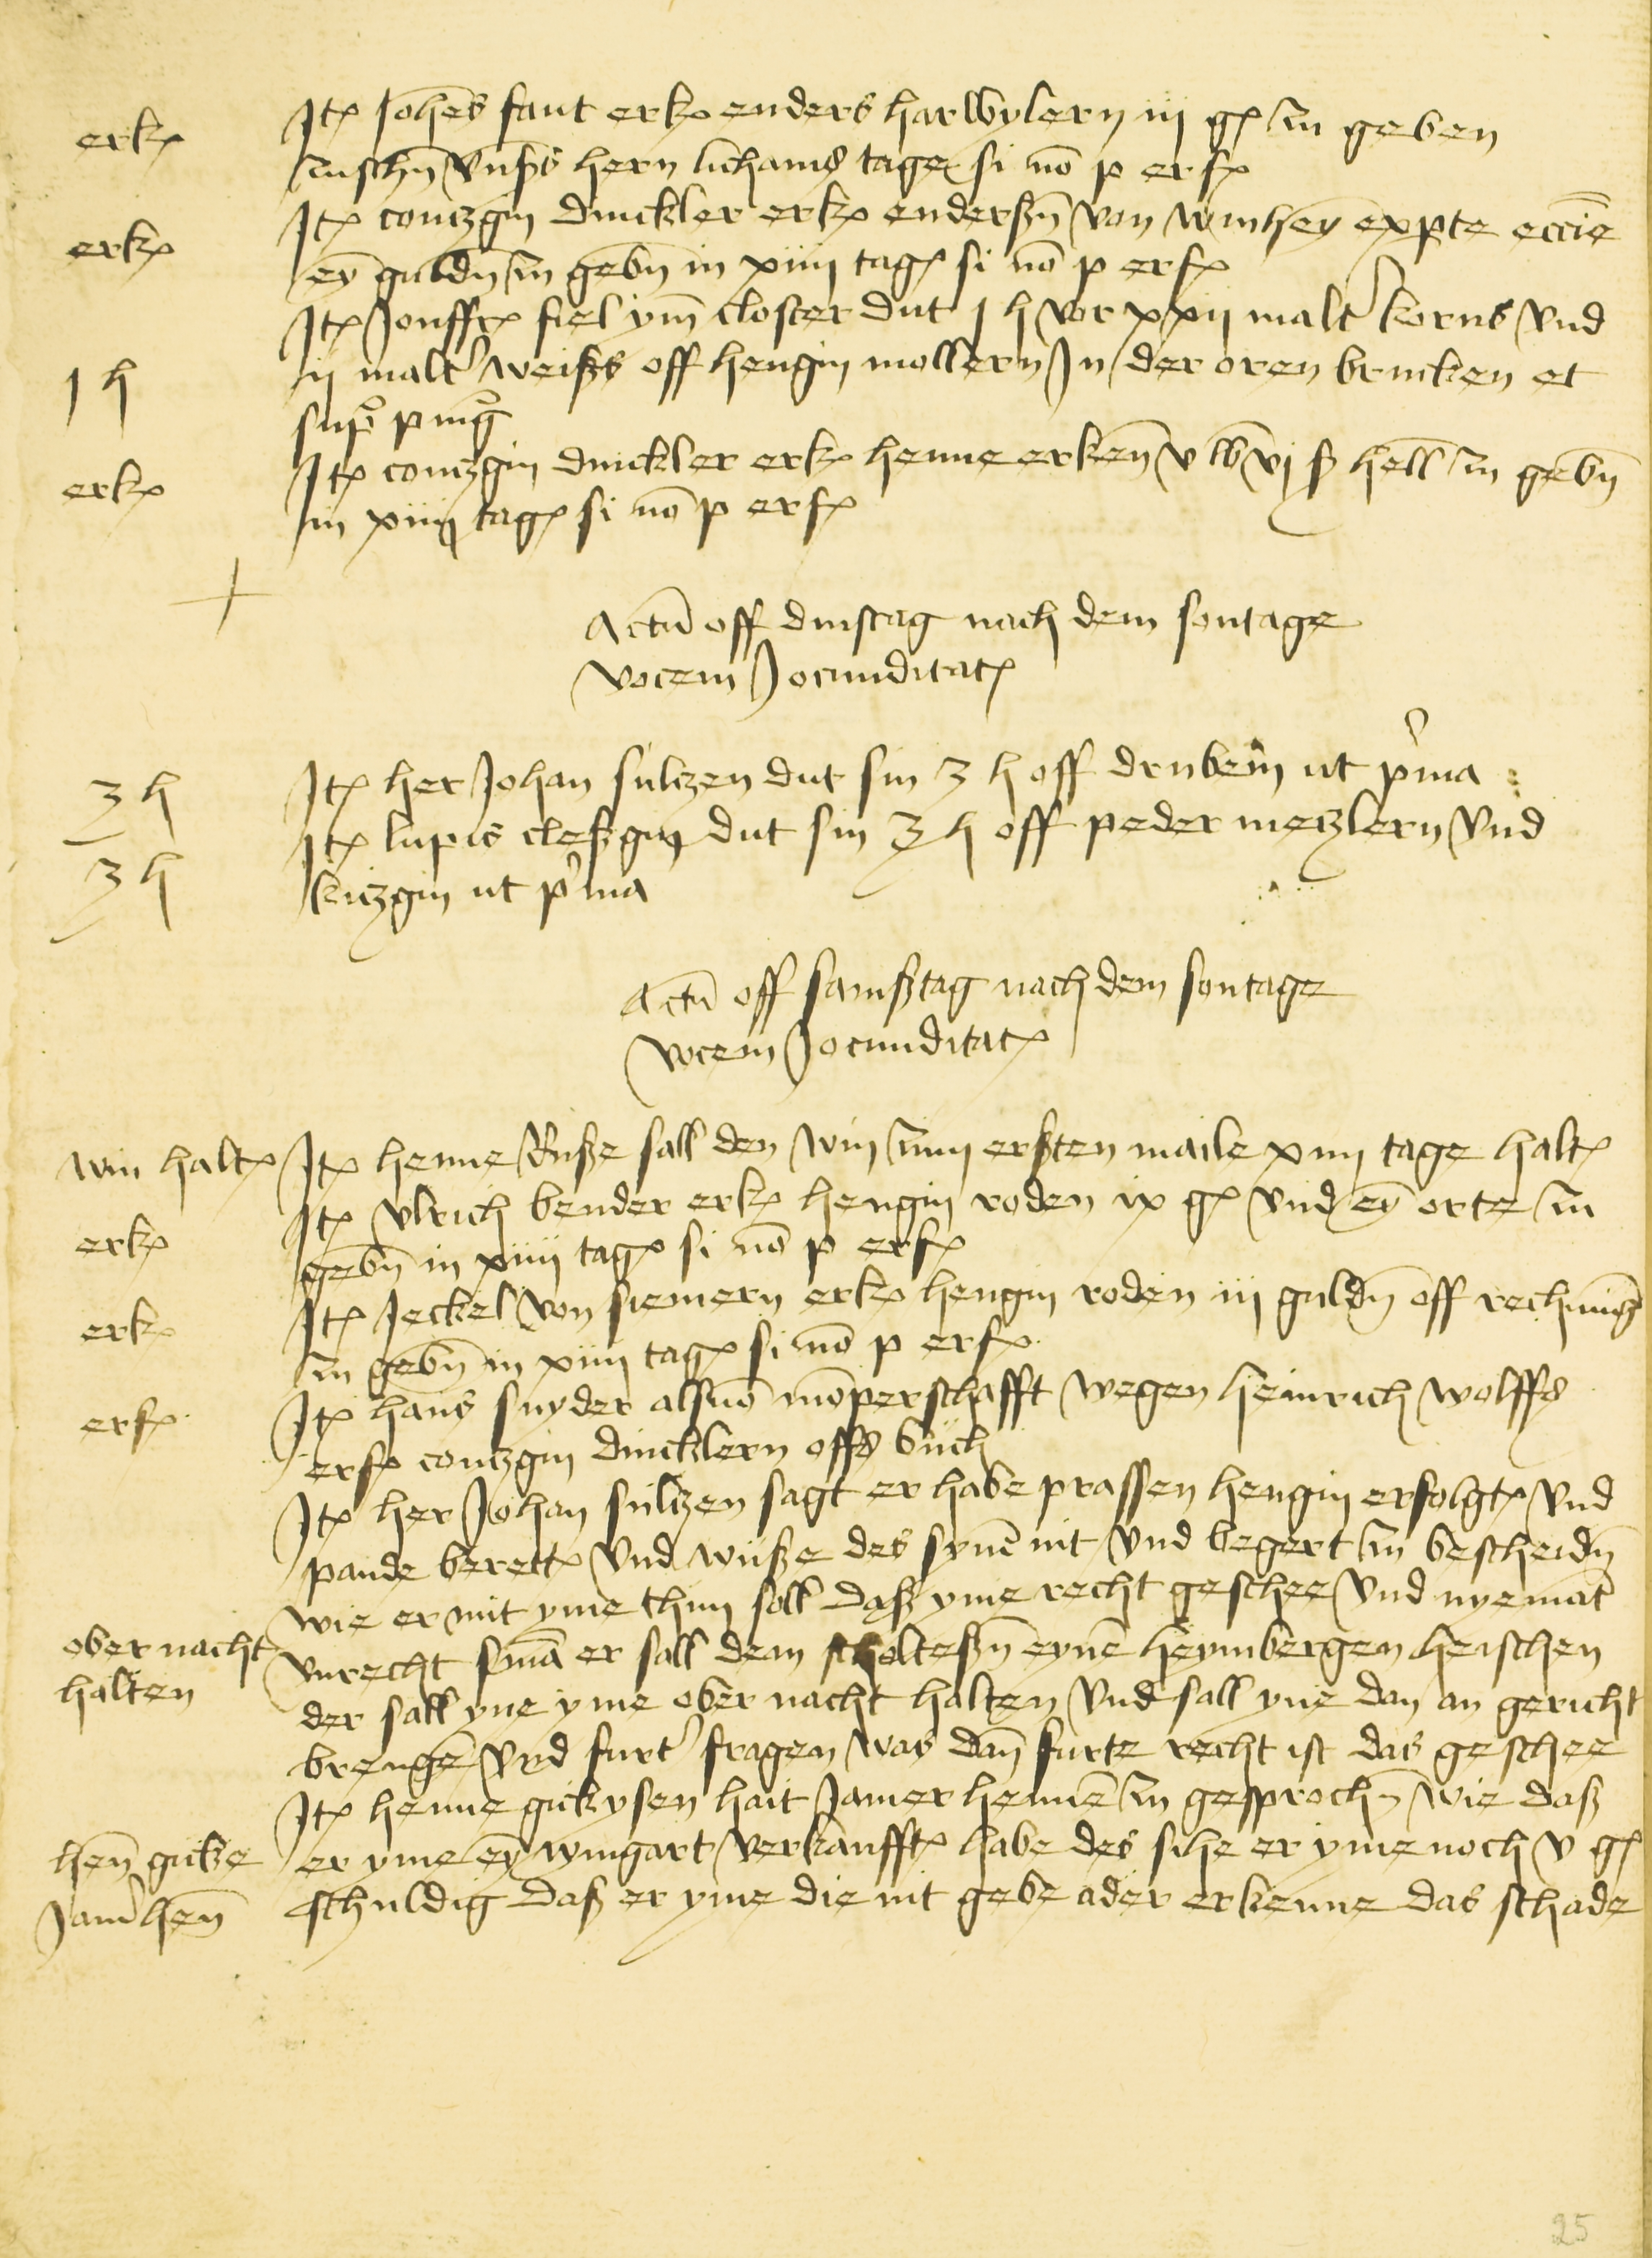 erk̄
Itē Joh̄es faut erk̄ enders harwylern iij ḡ zu geben
zuschn̄ vnß̄s hern lichams tage si nō p erf̄
erk̄
Itē contzgin dinckler erk̄ enderßn̄ von winhey̅ ex p̱te ecc̄ie
ey̅ guld̄n zu gebn̄ in xiiij taḡ si nō p erf̄
Itē Jonffr̄ fiel ym̄ closter dut j h vor xxij malt' korns vnd
j h
ij malt' weiß̄s off hengin mollern In der oren brucken et
sup̱ pīg
erk̄
Itē contzgin dinckler erk̄ henne erken̄ v lb̄ vj ß hell̄ zu gebn̄
in xiiij taḡ si nō p erf̄
Actū off dinstag nach dem sontage
vocem Jocunditat̄
3 h
Itē her Johan sultzen dut sin 3 h off druben̄ ut p'ma
Itē lupis cleßgin dut sin 3 h off peder metzlern vnd
3 h
kitzgin ut p'ma
Actū off samßtag nach dem sontage
vocem Jocunditat̄
win halt̄
Itē henne Ruße sall den win zum erßten maile xiiij tage halt̄
Itē vlrich bender erk̄ hengin roden ix ḡ vnd ey̅ orte zu
erk̄
gebn̄ in xiiij taḡ si nō p erf̄
Itē Jeckel von siemern erk̄ hengin roden iij guld̄n off rechnūg
erk̄
zu gebn̄ in xiiij taḡ si nō p erf̄
erf̄
Itē hans snyder alsnō mōperschafft wegen heinrich wolffs
erf̄ contzgin dincklern offs buch
Itē her Johan sultzen sagt er habe prassen hengin erfolgt̄ vnd
pande berett̄ vnd wuße des synē nit vnd begert zu bescheidn̄
wie er mit yme thun soll daß yme recht geschee vnd nyemāt
ober nacht
vnrecht s̄mā er sall dem scholteßn̄ eynē heymbergen heischen
halten
der sall yne yme ober nacht halten vnd sall yne dan an gericht
brengē vnd furt' fragen was dan̄ furte recht ist das geschee
Itē henne gickysen hait Jamer hennē zu gesprochn̄ wie daß
hen̄ gicke
er yme ey̅ wingart verkaufft̄ habe des sihe er yme noch v ḡ
Jam' hen̄
schuldig daß er yme die nit gebe ader erkenne das schade
25